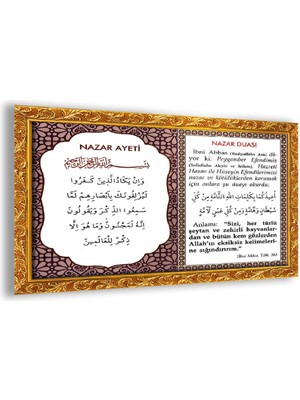 NAZAR AYETİ
بسم الله الرحمن الرحيم
وَإِنْ يَكَادُ الَّذِينَ كَفَرُوا
لَيُزْلِقُونَكَ بِأَبْصَارِهِمْ لَمَّا
سَمِعُوا الذِّكْرَ وَيَقُولُونَ
إِنَّهُ لَمَجْنُونٌ وَمَا هُوَ إِلَّا
ذِكْرٌ لِلْعَالَمِينَ
NAZAR DUASI
İbni Abbas (Radıyallahu Anh) di-
yor ki: Peygamber Efendimiz
(Sallallahu Aleyhi ve Sellem), Hazreti
Hasan ile Hüseyin Efendilerimizi
nazar ve kötülüklerden korumak
için onlara şu duayı okurdu:
أُعِيذُكُمَا بِكَلِمَاتِ اللَّهِ التَّامَّةِ مِنْ كُلِّ
شَيْطَانٍ وَهَامَّةٍ وَمِنْ كُلِّ عَيْنٍ لَامَّةٍ
Anlamı: "Sizi, her türlü
şeytan ve zehirli hayvanlar-
dan ve bütün kem gözlerden
Allah'ın eksiksiz kelimeleri-
ne sığındırırım."